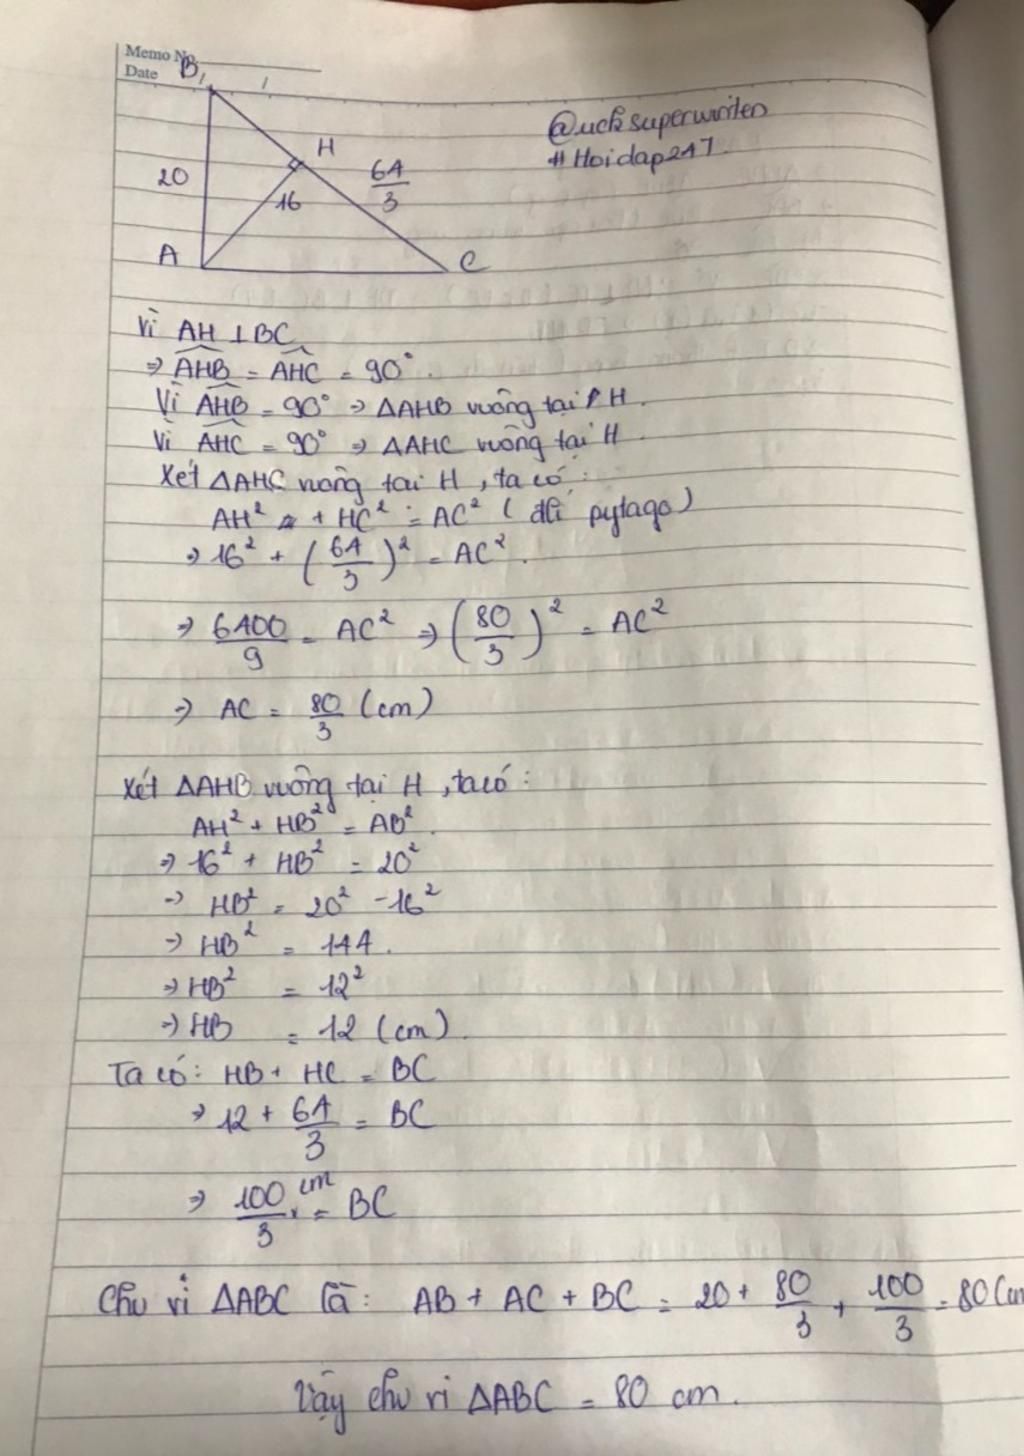 Memo No.
Date / /
B
@ucksuperwriten
#Hoidap247
H
20
64/3
16
A
C
Vì AH ⊥ BC
⇒ \widehat{AHB} = \widehat{AHC} = 90°.
Vì \widehat{AHB} = 90° ⇒ ΔAHB vuông tại H.
Vì \widehat{AHC} = 90° ⇒ ΔAHC vuông tại H
Xét ΔAHC vuông tại H, ta có:
AH² + HC² = AC² (đlí pytago)
⇒ 16² + (64/3)² = AC².
⇒ 6400/9 = AC² ⇒ (80/3)² = AC²
⇒ AC = 80/3 (cm)
Xét ΔAHB vuông tại H, ta có:
AH² + HB² = AB².
⇒ 16² + HB² = 20²
⇒ HB² = 20² - 16²
⇒ HB² = 144.
⇒ HB² = 12²
⇒ HB = 12 (cm).
Ta có: HB + HC = BC
⇒ 12 + 64/3 = BC
⇒ 100/3 cm = BC
Chu vi ΔABC là: AB + AC + BC = 20 + 80/3 + 100/3 = 80 (cm
Vậy chu vi ΔABC = 80 cm.